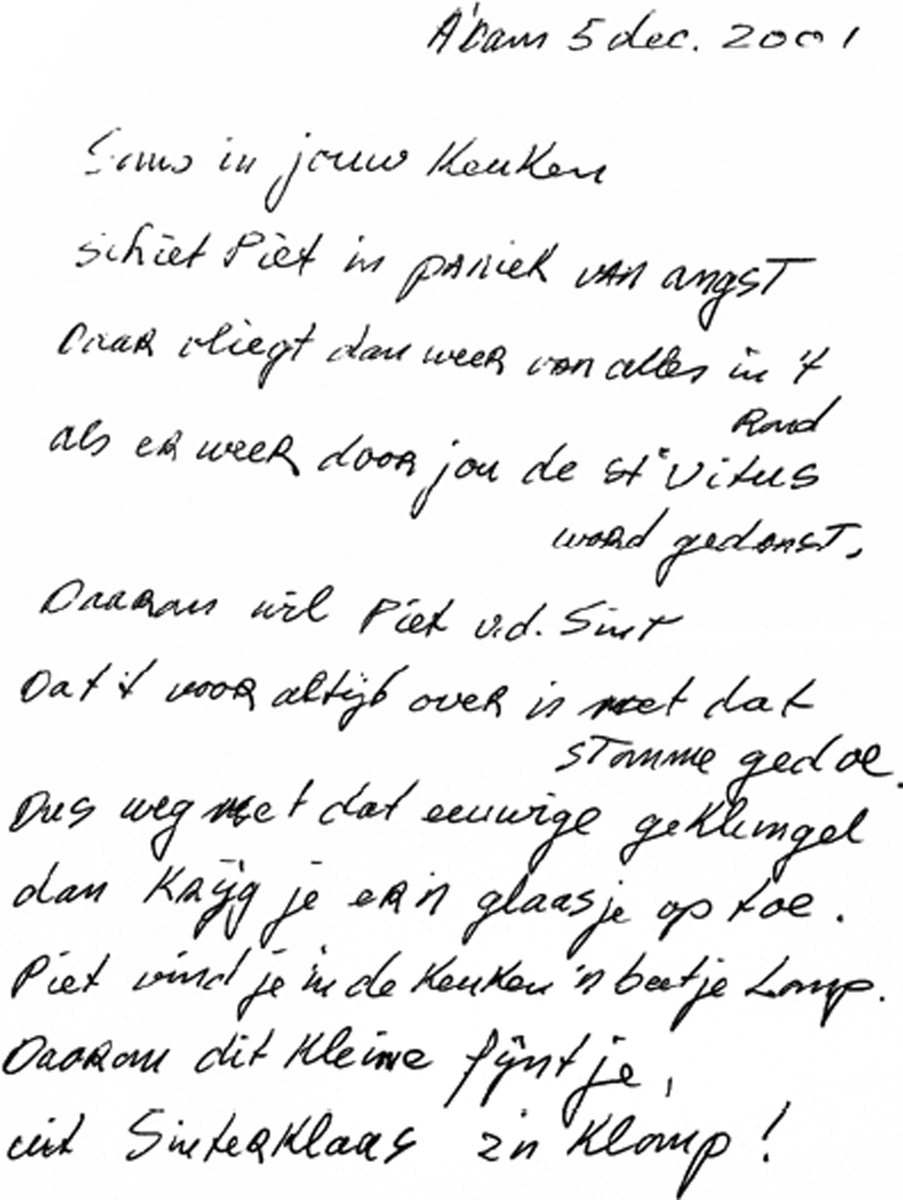 A'dam 5 dec. 2001
Soms in jouw keuken
schiet Piet in paniek van angst
Daar vliegt dan weer van alles in 't
rond
als er weer door jou de st. Vitus
word gedanst.
Daarom wil Piet v.d. Sint
Dat 't voor altijd over is met dat
stomme gedoe.
Dus weg met dat eeuwige geklungel
dan krijg je er 'n glaasje op toe.
Piet vind je in de keuken 'n beetje Lomp.
Daarom dit kleine fijntje,
uit Sinterklaas z'n klomp!